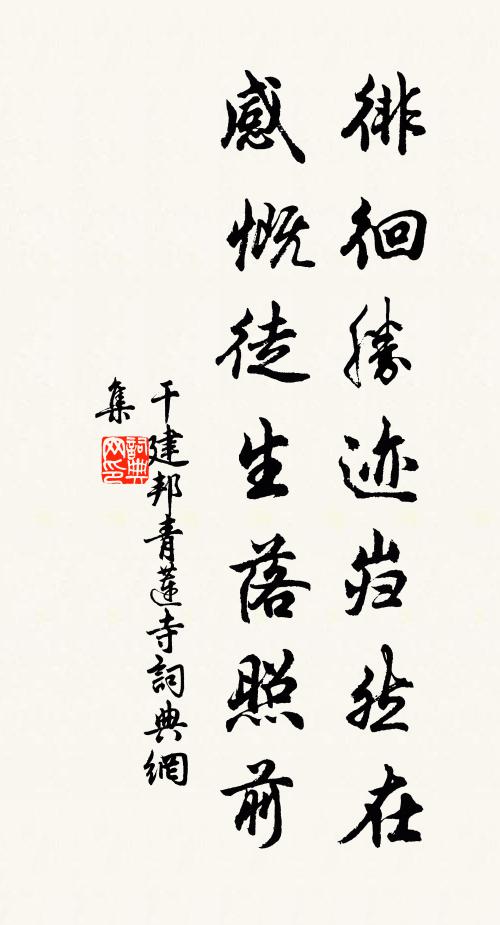 徘徊勝迹岿然在
感慨徒生落照前
于建邦青蓮寺詞典網
集
詞典网印